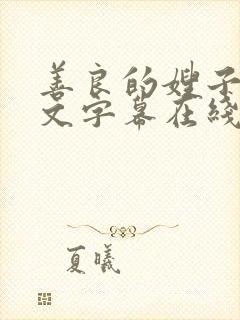 善良的嫂子
文字幕在线
夏曦